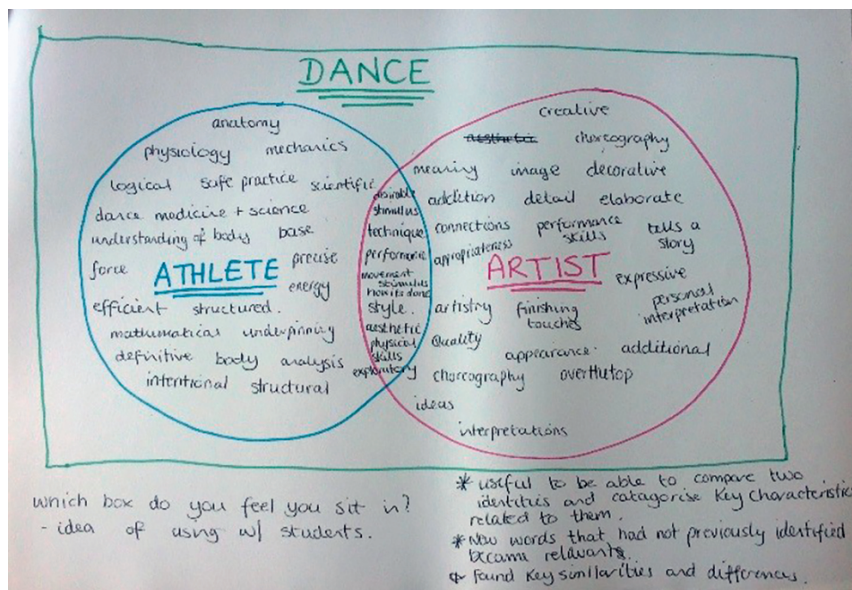 DANCE
anatomy
physiology mechanics
logical safe practice scientific
dance medicine + science
understanding of body base
force precise
ATHLETE
energy
efficient structured.
mathematical underpinning
definitive body analysis
intentional structural
desirable
stimulus
technique
performance
movement
stimulus
how its done
style.
aesthetic
physical
skills
exploratory
creative
aesthetic choreography
meaning image decorative
addition detail elaborate
connections performance skills tells a story
appropriateness
ARTIST
expressive
personal interpretation
artistry finishing touches
Quality
appearance. additional
choreography overthetop
ideas
interpretations
which box do you feel you sit in?
- idea of using w/ students.
* useful to be able to compare two
identitis and catagorise key characteristics
related to them.
* New words that had not previously identified
became relevant.
* found key similarities and differences.